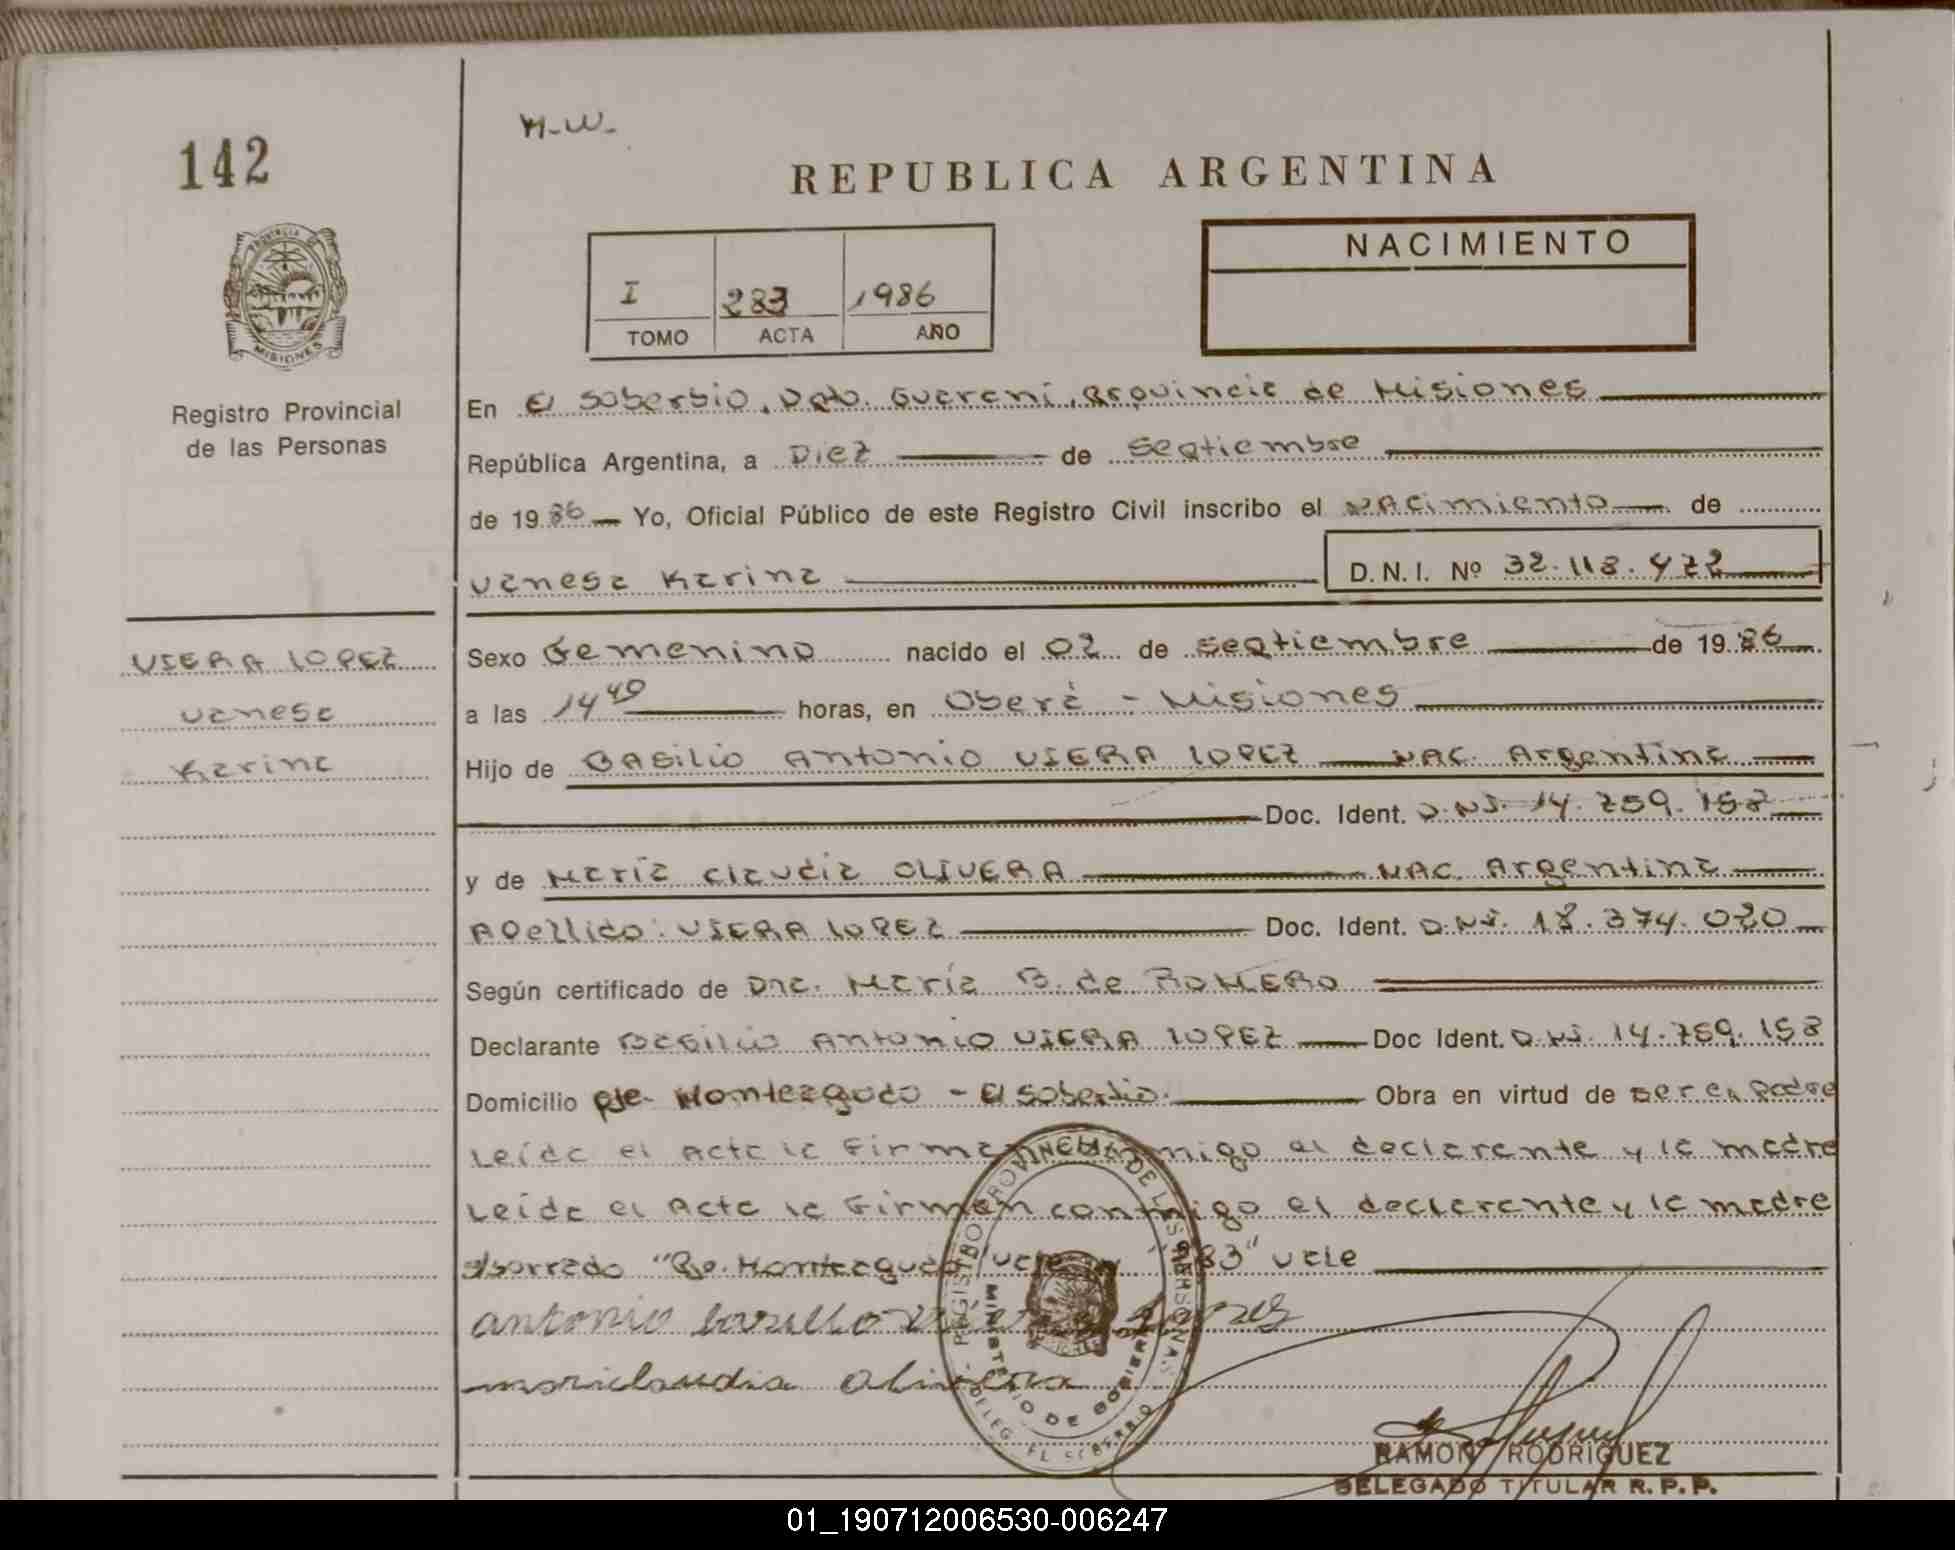 142
H.W.
REPUBLICA ARGENTINA
NACIMIENTO
I 283 1986
TOMO ACTA AÑO
PROVINCIA DE
MISIONES
Registro Provincial
de las Personas
En El Soberbio, Dpto. Guarani, Provincia de Misiones
República Argentina, a Diez de Septiembre
de 1986 Yo, Oficial Público de este Registro Civil inscribo el Nacimiento de
Vanesa Karina D.N.I. Nº 32.118.472
VIERA LOPEZ
Vanesa
Karina
Sexo Femenino nacido el 02 de Septiembre de 1986
a las 14 40 horas, en Oberá - Misiones
Hijo de Basilio Antonio VIERA LOPEZ NAC. Argentina
Doc. Ident. D.NI. 14.759.158
y de María Claudia OLIVERA NAC. Argentina
Apellido: VIERA LOPEZ Doc. Ident. D.NI. 18.374.020
Según certificado de Dra. María B. de ROMERO
Declarante Basilio Antonio VIERA LOPEZ Doc Ident. D.NI. 14.759.158
Domicilio Pje. Monteagudo - El Soberbio. Obra en virtud de ser el padre
Leída el Acta la firman conmigo el declarante y la madre
Leída el Acta la firman conmigo el declarante y la madre
s/borrado "Pje. Monteagudo" vale "283" vale
antonio Viera Lopez
mariclaudia Olivera
REGISTRO PROVINCIAL DE LAS PERSONAS
MINISTERIO DE GOBIERNO
DELEG. EL SOBERBIO
RAMON RODRIGUEZ
DELEGADO TITULAR R.P.P.
01_190712006530-006247